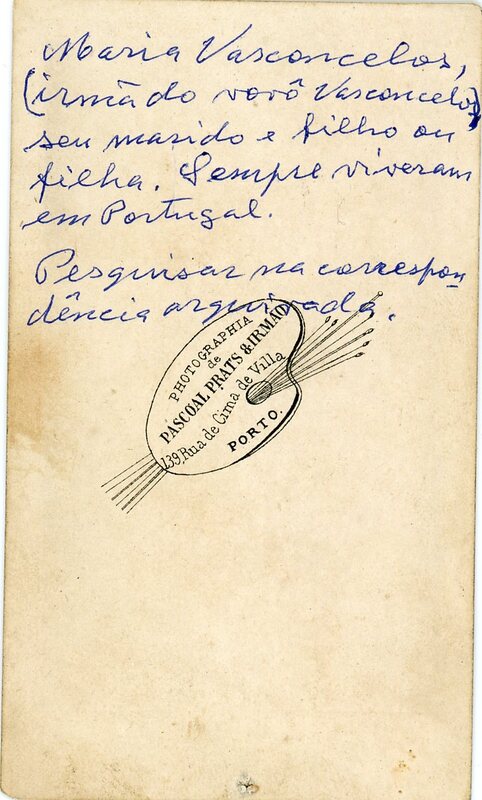 Maria Vasconcelos,
(irmã do vovô Vasconcelos)
seu marido e filho ou
filha. Sempre viveram
em Portugal.
Pesquisar na correspon
dência arquivada.
PHOTOGRAPHIA
de
PASCOAL PRATS & IRMÃO
139, Rua de Cima de Villa
PORTO.